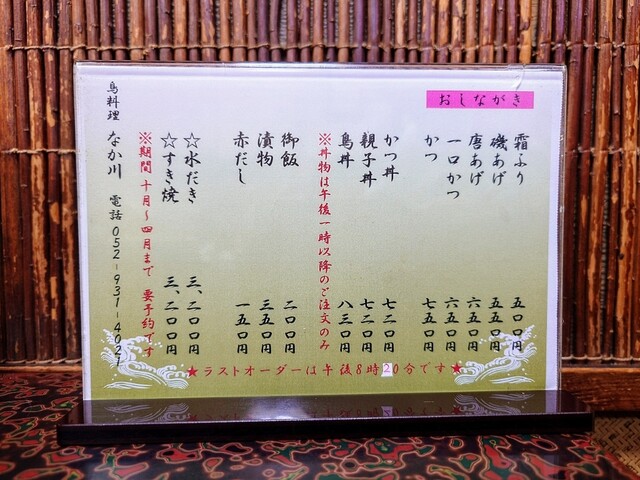 おしながき
霜ふり 五〇〇円
磯あげ 五五〇円
唐あげ 六五〇円
一口かつ 六五〇円
かつ 七五〇円
かつ丼 七二〇円
親子丼 七二〇円
鳥丼 八三〇円
※丼物は午後一時以降のご注文のみ
御飯 二〇〇円
漬物 三五〇円
赤だし 一五〇円
☆水だき 三、二〇〇円
☆すき焼 三、二〇〇円
※期間 十月～四月まで 要予約です
鳥料理 なか川 電話 052-931-4021
★ラストオーダーは午後8時20分です★